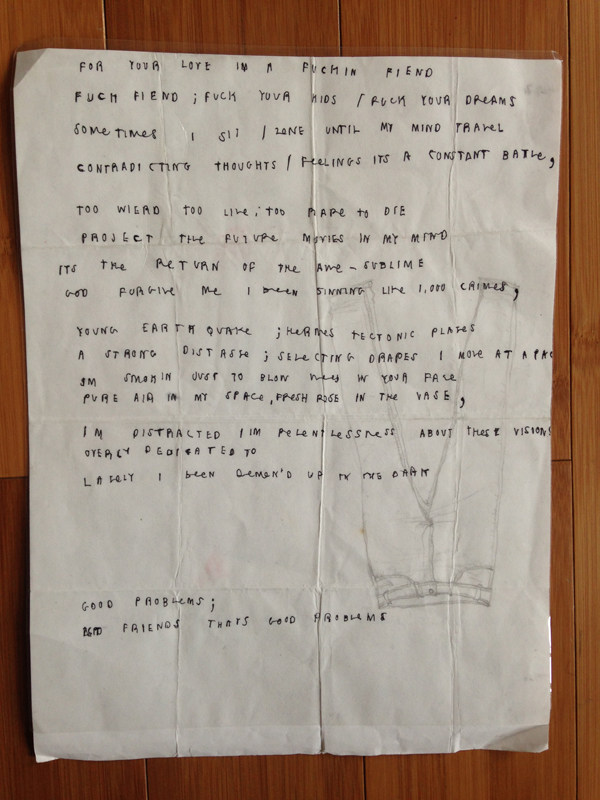 FOR YOUR LOVE IM A FUCKIN FIEND
FUCK FIEND ; FUCK YOUR KIDS / FUCK YOUR DREAMS
SOMETIMES I SIT / ZONE UNTIL MY MIND TRAVEL
CONTRADICTING THOUGHTS / FEELINGS ITS A CONSTANT BATLE,
TOO WIERD TOO LIVE ; TOO RARE TO DIE
PROJECT THE FUTURE MOVIES IN MY MIND
ITS THE RETURN OF THE AWE-SUBLIME
GOD FORGIVE ME I BEEN SINNING LIKE 1,000 CRIMES,
YOUNG EARTH QUAKE ; HERMES TECTONIC PLATES
A STRONG DISTASTE ; SELECTING DRAPES I MOVE AT A PAC
IM SMOKIN JUST TO BLOW IN YOUR FACE
PURE AIR IN MY SPACE, FRESH ROSE IN THE VASE,
I'M DISTRACTED I IM RELENTLESSNESS ABOUT THESE VISIONS
OVERLY DEDICATED TO
LATELY I BEEN DEMON'D UP IN THE DARK
GOOD PROBLEMS;
FRIENDS THATS GOOD PROBLEMS